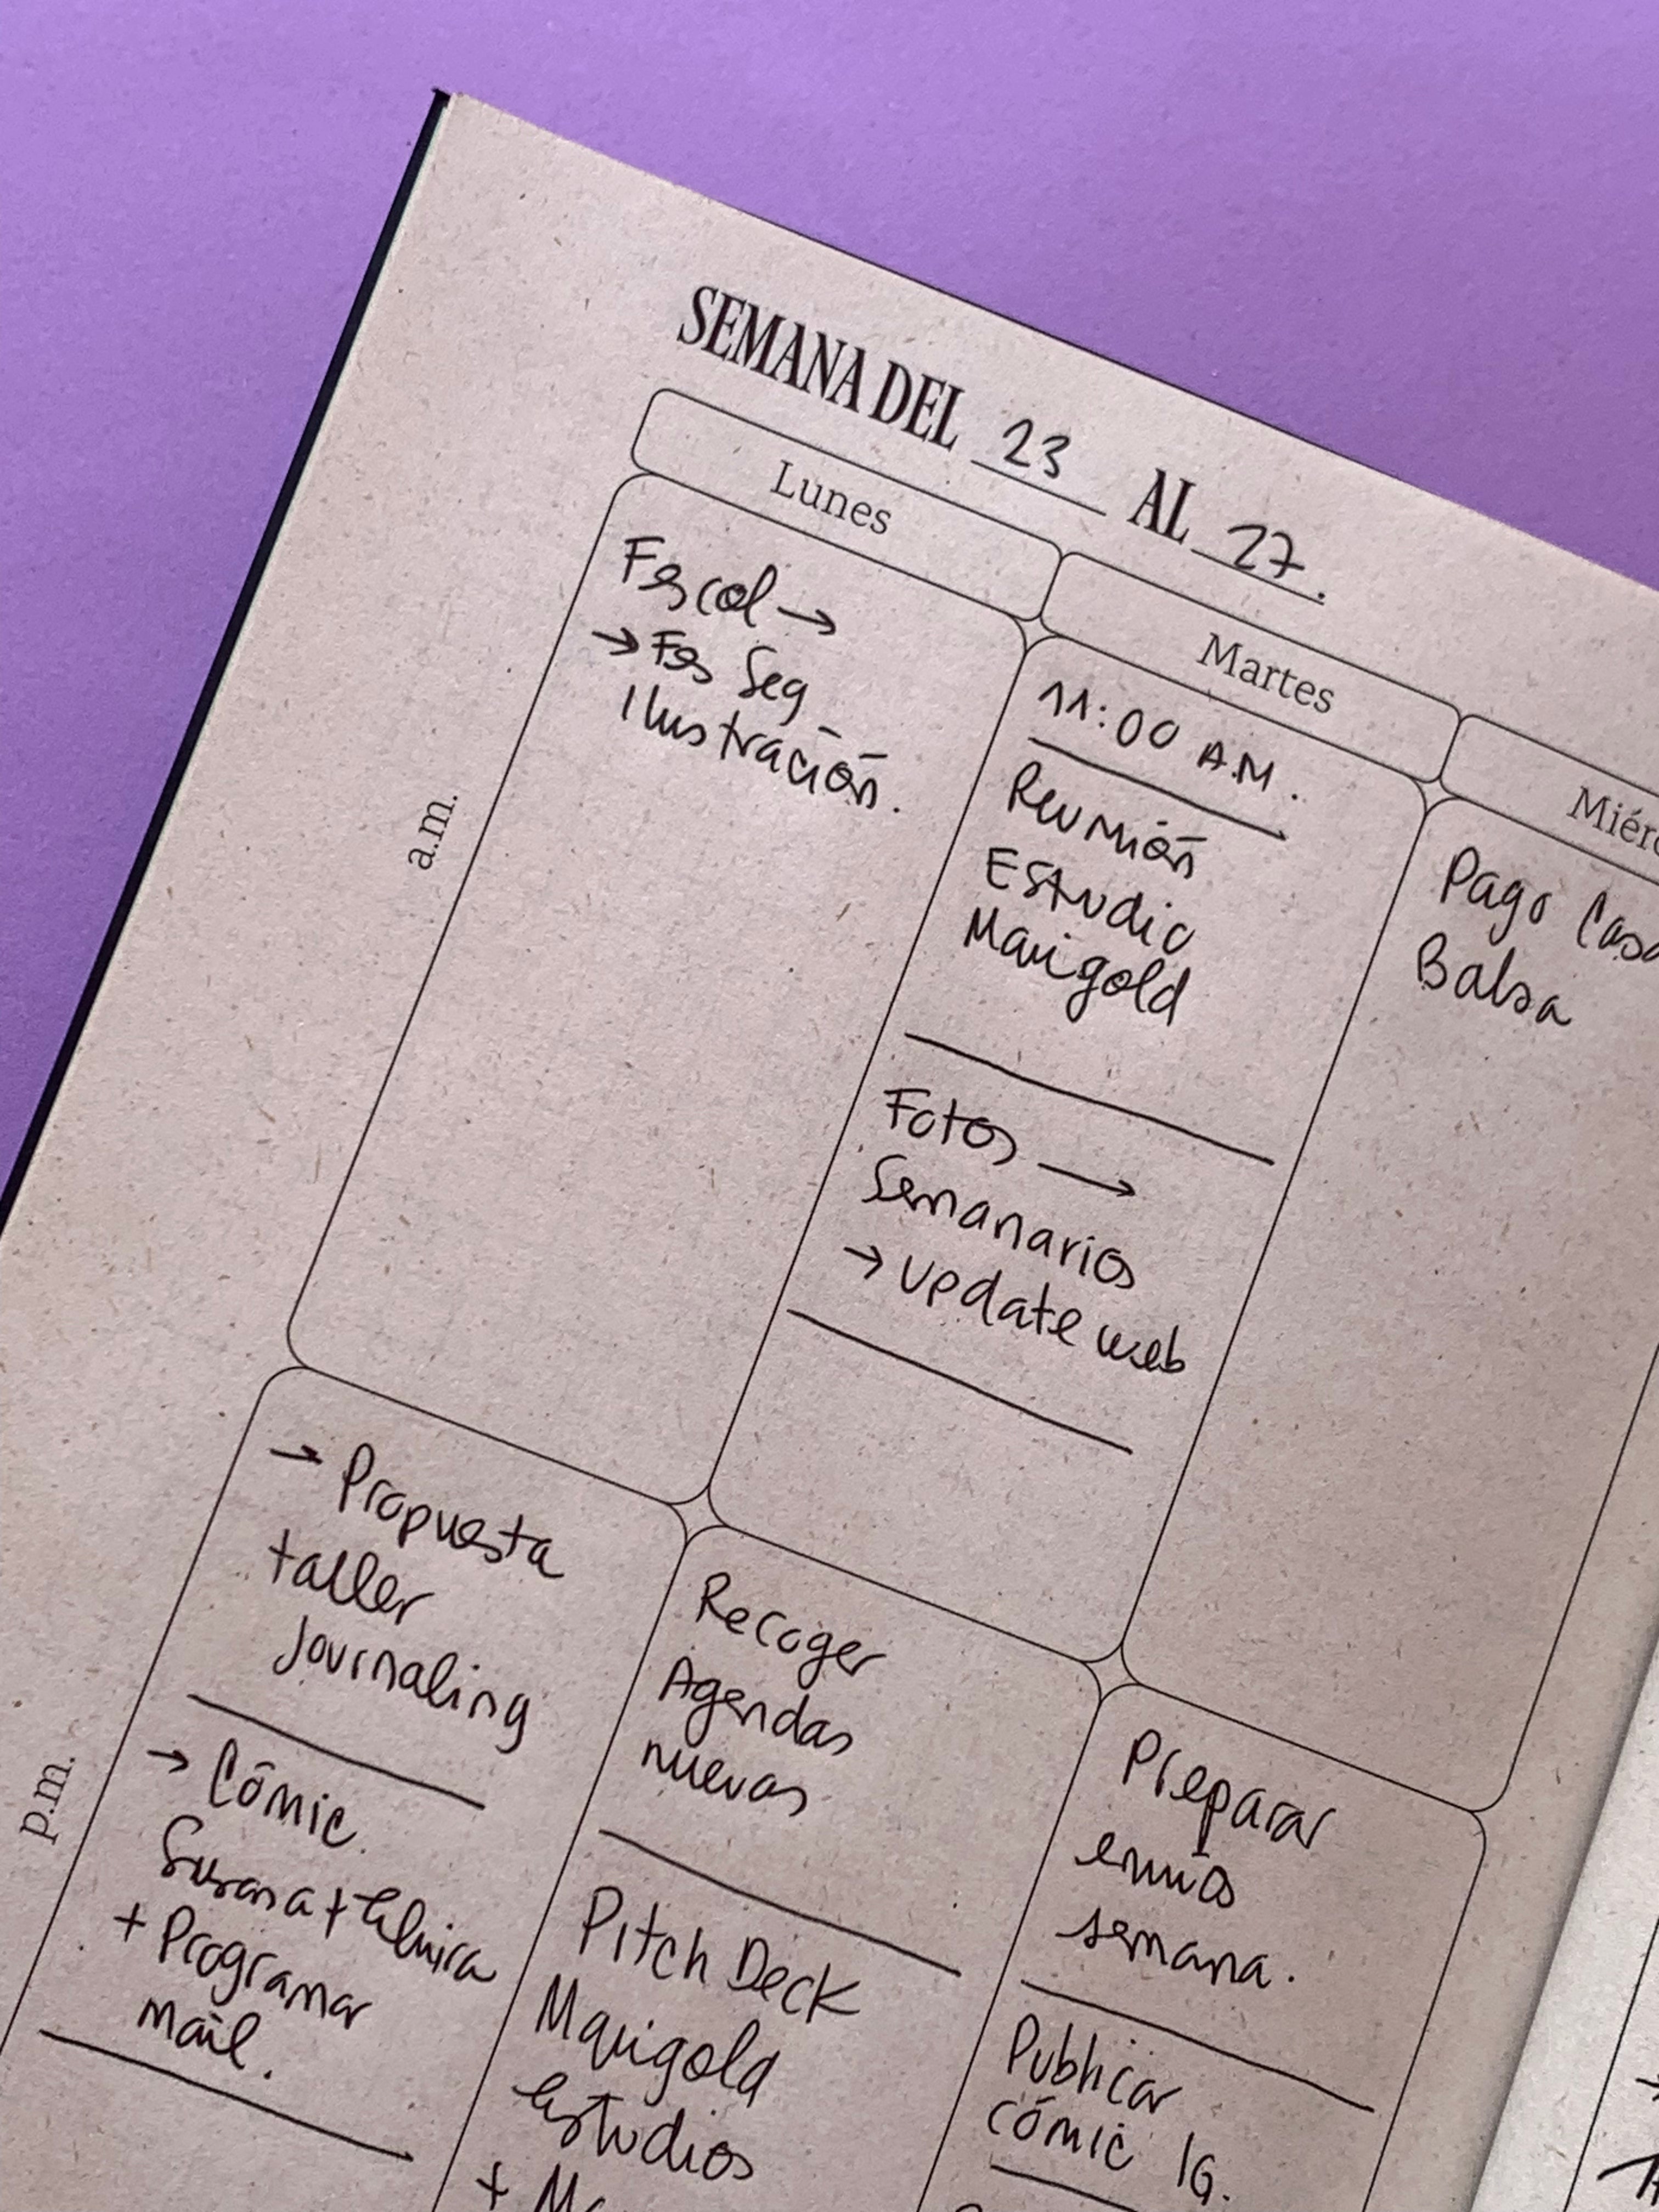 SEMANA DEL 23 AL 27.
Lunes
Fescol →
→ Fes Seg_
Ilustración.
Martes
11:00 A.M.
Reunión
Estudio
Marigold
Fotos →
Semanarios
→ update web
Pago Casa
Balsa
a.m.
p.m.
→ Propuesta
taller
Journaling
→ Cómic
Susana + Elvira
+ Programar
mail.
Recoger
Agendas
nuevas
Pitch Deck
Marigold
Estudios
+
Preparar
envíos
semana.
Publicar
cómic IG.